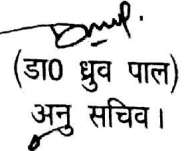 (डा0 ध्रुव पाल)
अनु सचिव।